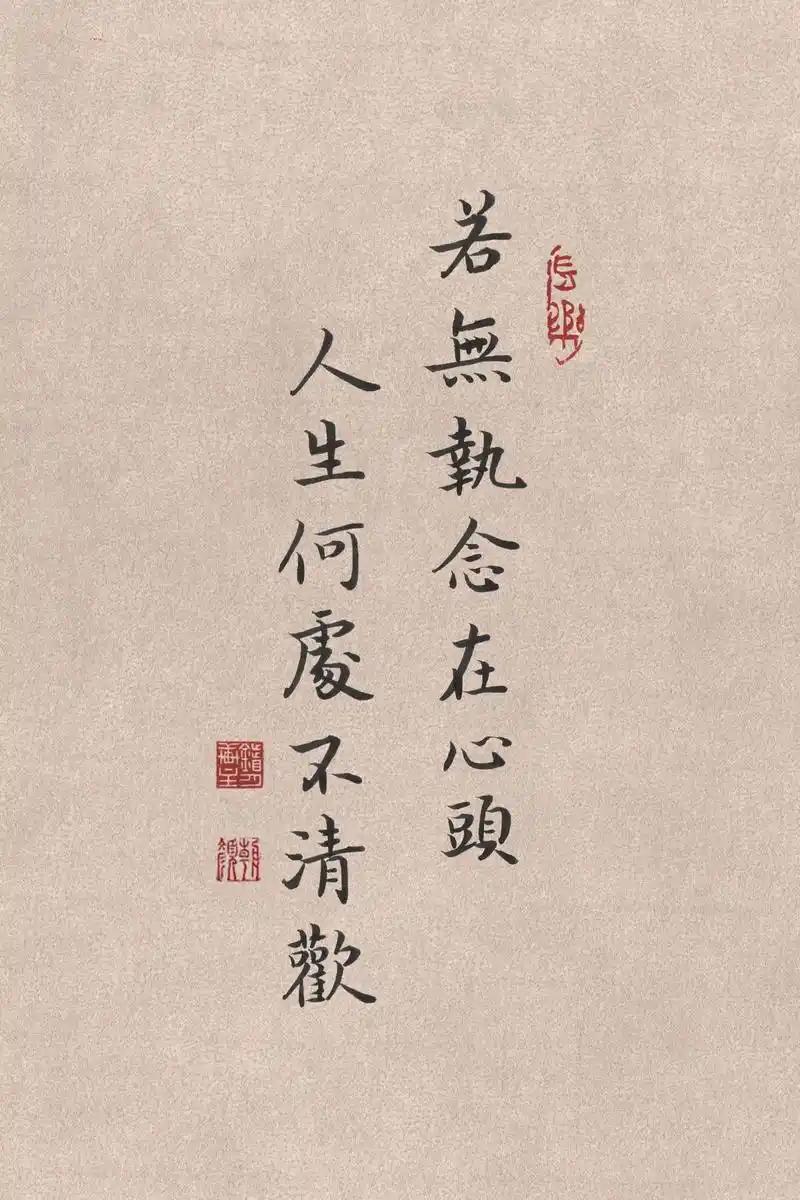 若無執念在心頭
人生何處不清歡
長樂